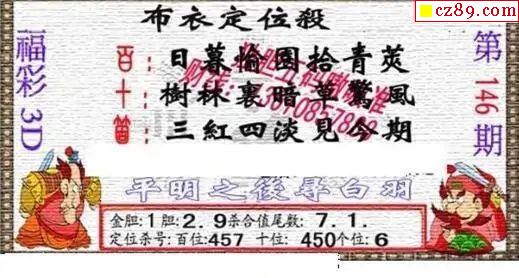 cz89.com
布衣定位殺
福彩3D
第146期
百：日暮愉園拾青莢
十：樹林裏暗草驚風
個：三紅四淡見今期
平明之後尋白羽
金胆:1胆:2.9杀合值尾数:7.1.
定位杀号:百位:457 十位: 450个位:6